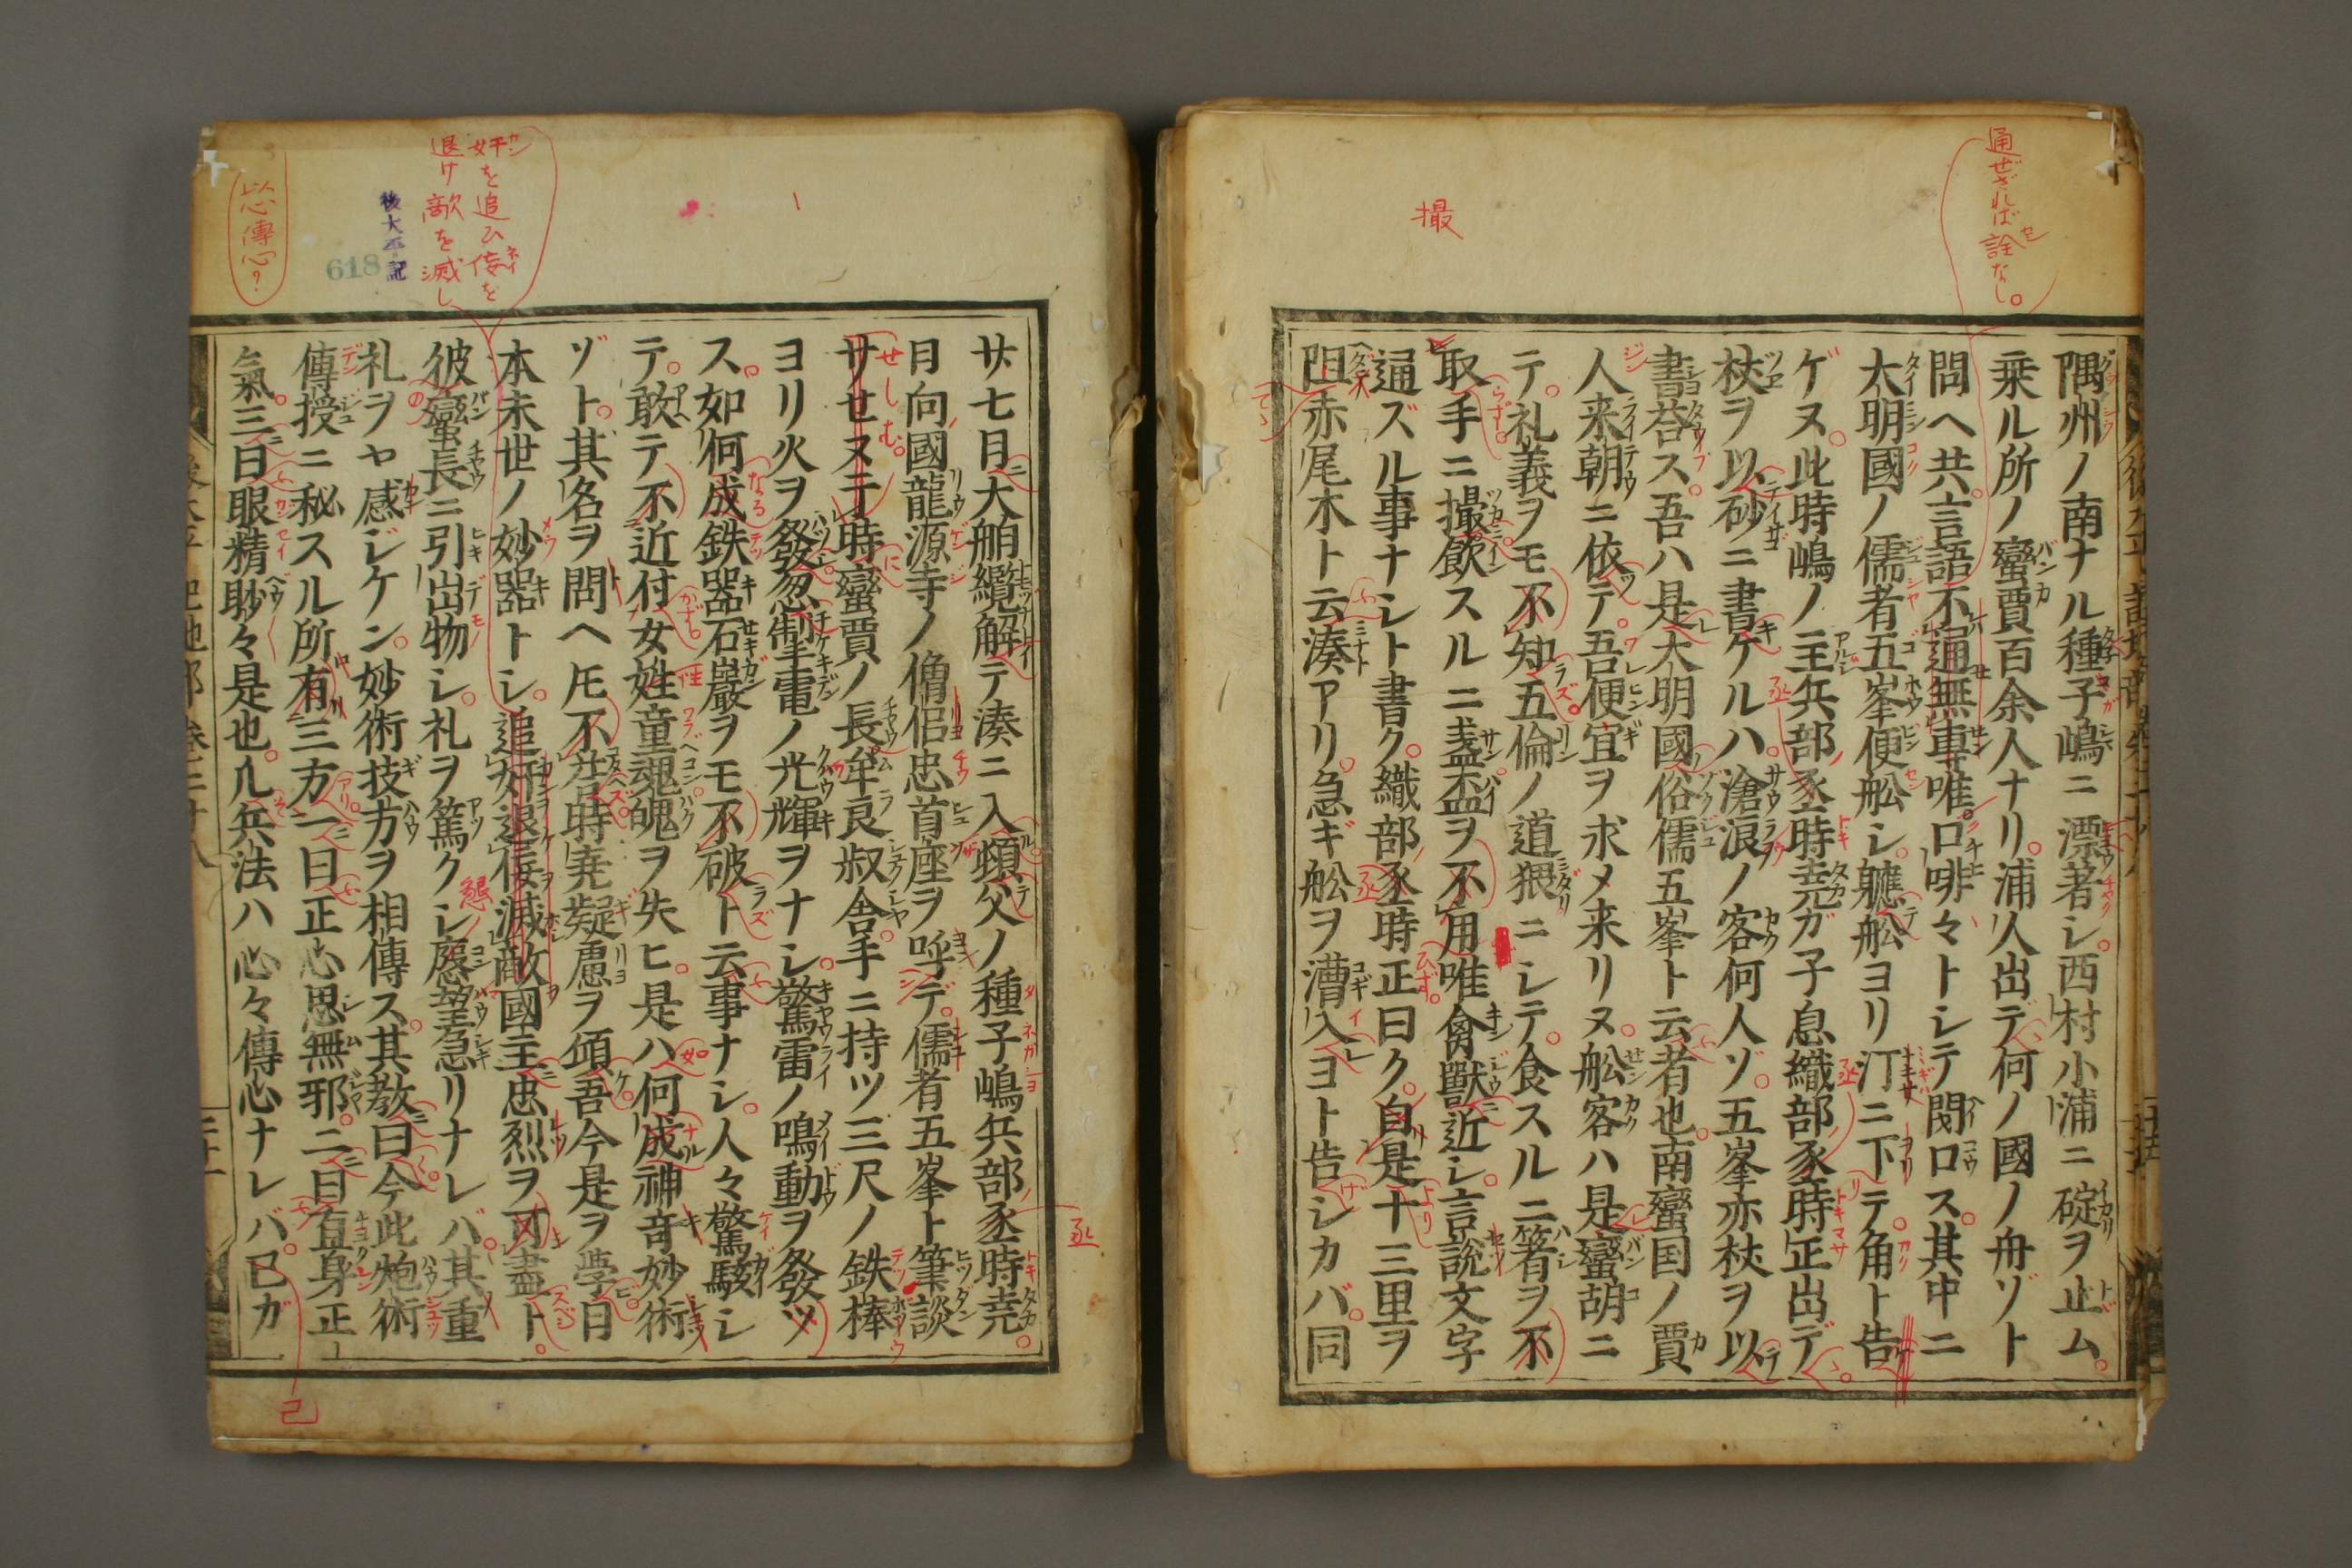 通ぜざれば詮なし。
撮
隅州ノ南ナル種子嶋ニ漂著シ。西村小浦ニ碇ヲ止ム。
乗ル所ノ蠻賈百余人ナリ。浦人出デ何ノ國ノ舟ゾト
問ヘ共。言語不通無專。唯口啡々トシテ閉口ス。其中ニ
大明國ノ儒者五峯便舩シ。艤舩ヨリ汀ニ下テ。角ト告
ゲヌ。此時嶋ノ主兵部丞時尭ガ子息織部丞時正出デ
杖ヲ以砂ニ書ケルハ。滄浪ノ客何人ゾ。五峯亦杖ヲ以
書荅ス。吾ハ是大明國俗儒五峯ト云者也。南蠻国ノ賈
人来朝ニ依テ。吾便宜ヲ求メ来リヌ。舩客ハ是蠻胡ニ
テ。礼義ヲモ不知。五倫ノ道猥ニシテ。食スルニ箸ヲ不
取。手ニ撮飲スルニ盞盃ヲ不用。唯禽獸ニ近シ。言説文字
通ズル事ナシト書ク。織部丞時正曰ク。自是十三里ヲ
阻赤尾木ト云湊アリ。急ギ舩ヲ漕入ヨト告シカバ。同
廿七日大舶纜解テ湊ニ入。頻父ノ種子嶋兵部丞時尭。
日向國龍源寺ノ僧侶忠首座ヲ呼デ。儒者五峯ト筆談
サセヌ。于時蠻賈ノ長牟良叔舎。手ニ持ツ三尺ノ鉄棒
ヨリ火ヲ發。忽掣電ノ光輝ヲナシ。驚雷ノ鳴動ヲ發ツ
ス。如何成鉄器石巖ヲモ不破ト云事ナシ。人々驚駭シ
テ。敢テ不近付。女姓童魂魄ヲ失ヒ。是ハ何成神奇妙術
ゾト。其名ヲ問ヘ𪜈不荅。時尭凝慮ヲ傾。吾今是ヲ學。日
本末世ノ妙器トシ。追奸退佞滅敵國主忠烈ヲ可盡ト。
彼蠻長ニ引出物シ。礼ヲ篤クシ。慇望急リナレバ。其重
礼ヲヤ感ジケン。妙術技方ヲ相傳ス。其教曰。今此炮術
傳授ニ秘スル所有三方。一曰正心思無邪。二曰直身正
氣。三曰眼精眇々是也。凡兵法ハ心々傳心ナレバ。已ガ
丞
奸を追ひ佞を
退け敵を滅し
後太平記
618
以心傳心?
己